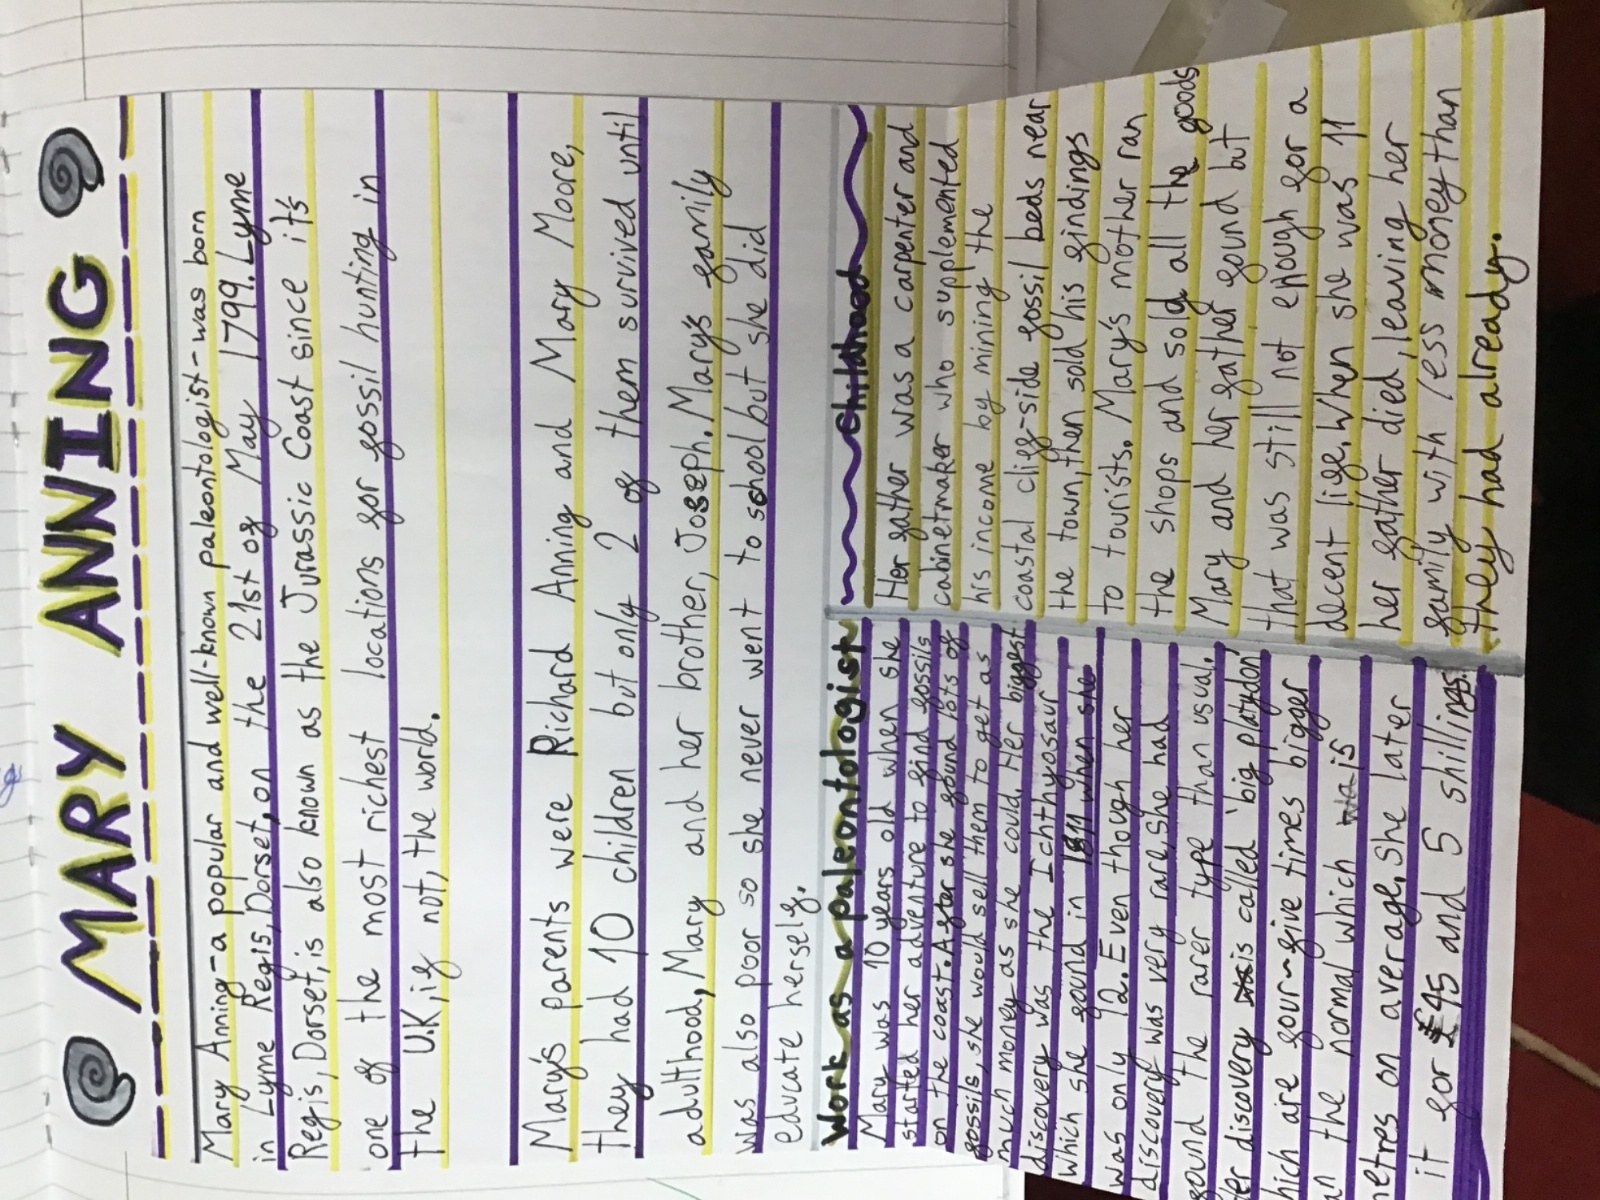 MARY ANNING
Mary Anning-a popular and well-known paleontologist-was born
in Lyme Regis, Dorset, on the 21st of May 1799. Lyme
Regis, Dorset, is also known as the Jurassic Coast since it's
one of the most richest locations for fossil hunting in
the U.K, if not, the world.
Mary's parents were Richard Anning and Mary Moore,
they had 10 children but only 2 of them survived until
adulthood, Mary and her brother, Joseph. Mary's family
was also poor so she never went to school but she did
educate herself.
Work as a paleontologist
Mary was 10 years old when she
started her adventure to find fossils
on the coast. After she found lots of
fossils, she would sell them to get as
much money as she could. Her biggest
discovery was the Ichthyosaur
which she found in 1811 when she
was only 12. Even though her
discovery was very rare, She had
found the rarer type than usual.
Her discovery is called 'big platydon'
which are four-five times bigger
than the normal which is
metres on average. She later
it for £45 and 5 shillings.
Childhood
Her father was a carpenter and
cabinetmaker who suplemented
his income by mining the
coastal cliff-side fossil beds near
the town, then sold his findings
to tourists. Mary's mother ran
the shops and sold all the goods
Mary and her father found but
that was still not enough for a
decent life. When she was 11
her father died, leaving her
family with less money than
they had already.